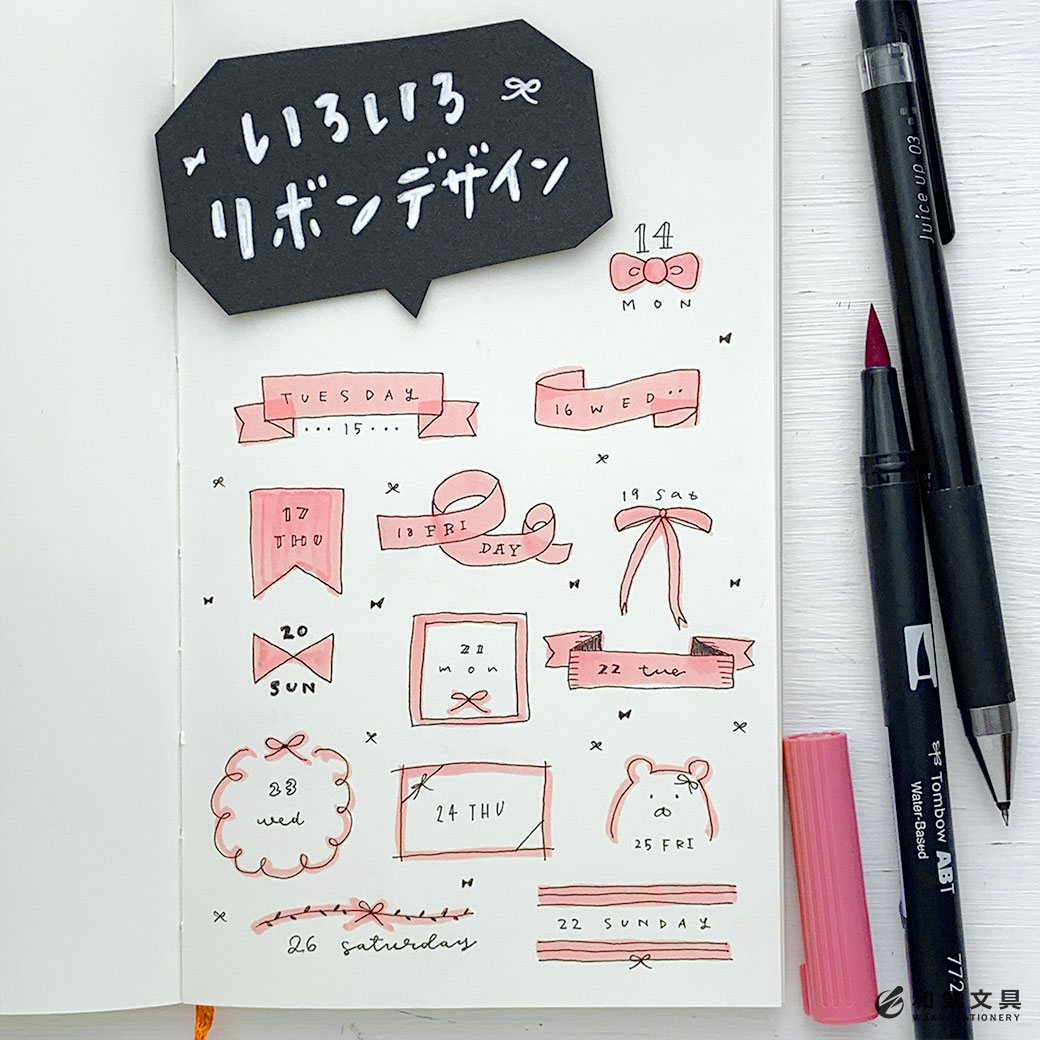 いろいろ
リボンデザイン
14
MON
TUESDAY
...15...
16 WED..
17
THU
18 FRI
DAY
19 Sat
20
SUN
21
mon
22 tue
23
wed
24 THU
25 FRI
26 saturday
22 SUNDAY
Juice up 03
Tombow ABT
Water-Based
772
文具